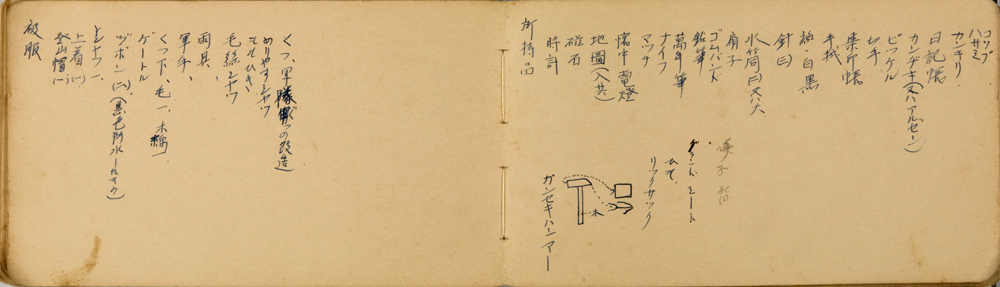 コップ
ハサミ
カンキリ
日記帳
カンヂキ(又ハアルゼーン)
ピッケル
切手
集印帳
手拭
紐・白黒
針(三)
水筒(二)又ハ大
扇子
ゴムバンド
鉛筆
萬年筆
ナイフ
マッチ
懐中電燈
地圖(入共)
磁石
時計
所持品
グランドシート
ひて、
リックサック
木
ガンセキハンマー
くつ、軍隊ぐつの改造)
めりやすシャツ
ももひき
毛絲シャツ
雨具、
軍手、
くつ下、毛一、木綿一
ゲートル
ヅボン(二)、(黒色防水一
上シャツ一、
上着(一)
登山帽(一)
被服